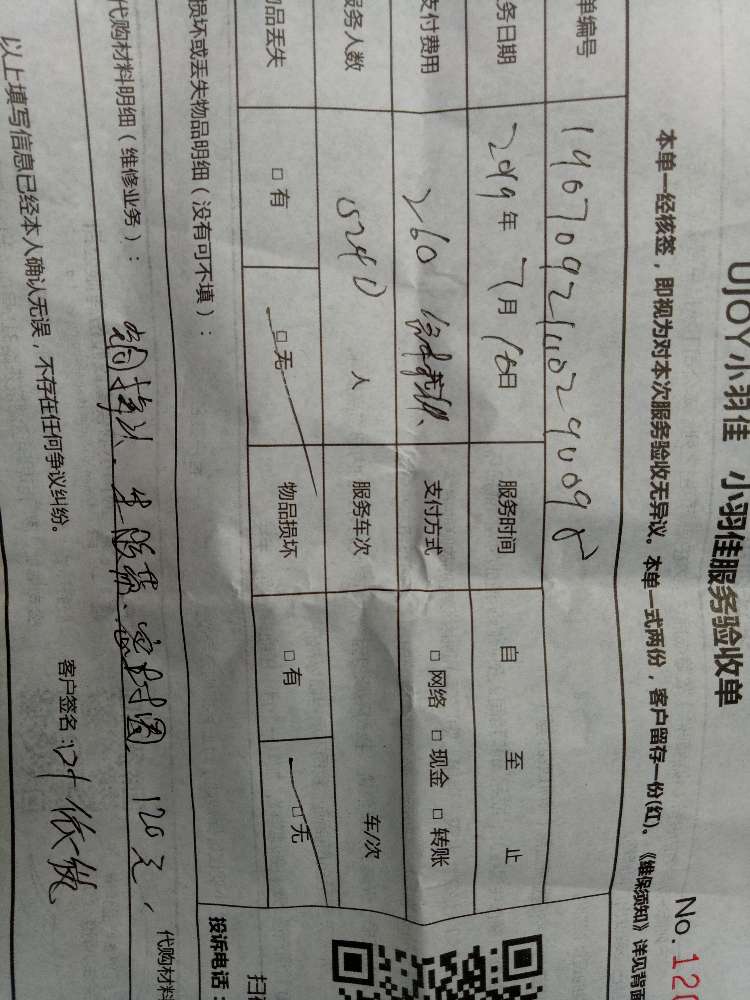 UJOY小羽佳 小羽佳服务验收单
No.120
本单一经核签，即视为对本次服务验收无异议。本单一式两份，客户留存一份(红)。《维保须知》详见背面
单编号
务日期 2019年7月16日 服务时间 自 至 止
支付费用 260 支付方式 □ 网络 □ 现金 □ 转账
服务人数 5240 人 服务车次 车/次
品丢失 □ 有 □ 无 物品损坏 □ 有 □ 无
损坏或丢失物品明细（没有可不填）：
代购材料明细（维修业务）： 密封圈 120元，
代购材料
以上填写信息已经本人确认无误，不存在任何争议纠纷。 客户签名：
扫
投诉电话：